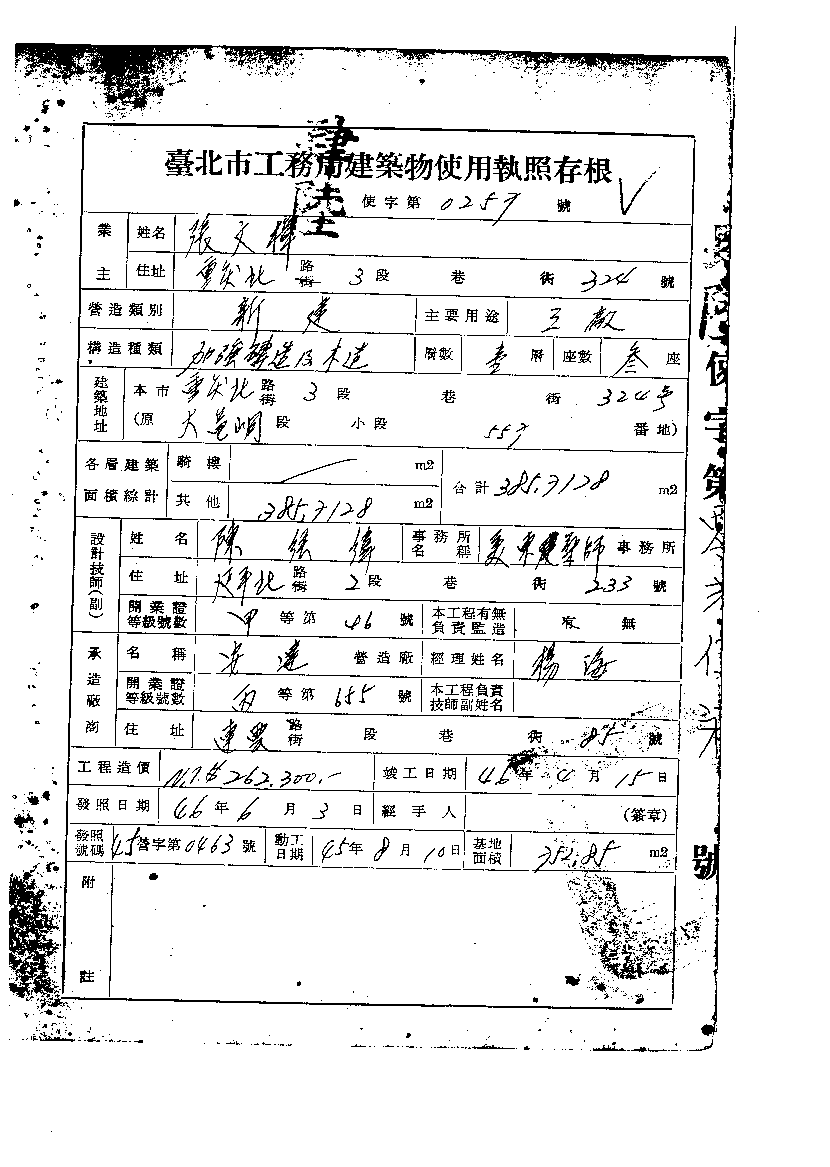 臺北市工務局建築物使用執照存根
肆陸 使字第 0257 號
業主 姓名 張文樟
住址 重慶北 路街 3 段 巷 街 324 號
營造類別 新建 主要用途 工廠
構造種類 加強磚造及木造 層數 壹 層 座數 叁 座
建築地址 本市 重慶北 路街 3 段 巷 街 324号
(原 大龍峒 段 小段 557 番地)
各層建築面積綜計 騎樓 m2 合計 385.7128 m2
其他 385.7128 m2
設計技師(副) 姓名 陳 事務所名稱 建築師 事務所
住址 延平北 路街 2 段 巷 街 233 號
開業證等級號數 甲 等第 46 號 本工程有無負責監造 有 無
承造廠商 名稱 營造廠 經理姓名 楊海
開業證等級號數 丙 等第 655 號 本工程負責技師副姓名
住址 路街 段 巷 街 85 號
工程造價 N.T.$262,300.- 竣工日期 46 年 4 月 15 日
發照日期 46 年 6 月 3 日 經手人 (簽章)
發照號碼 45 營字第 0463 號 動工日期 45 年 8 月 10 日 基地面積 352.85 m2
附註
使字第 號